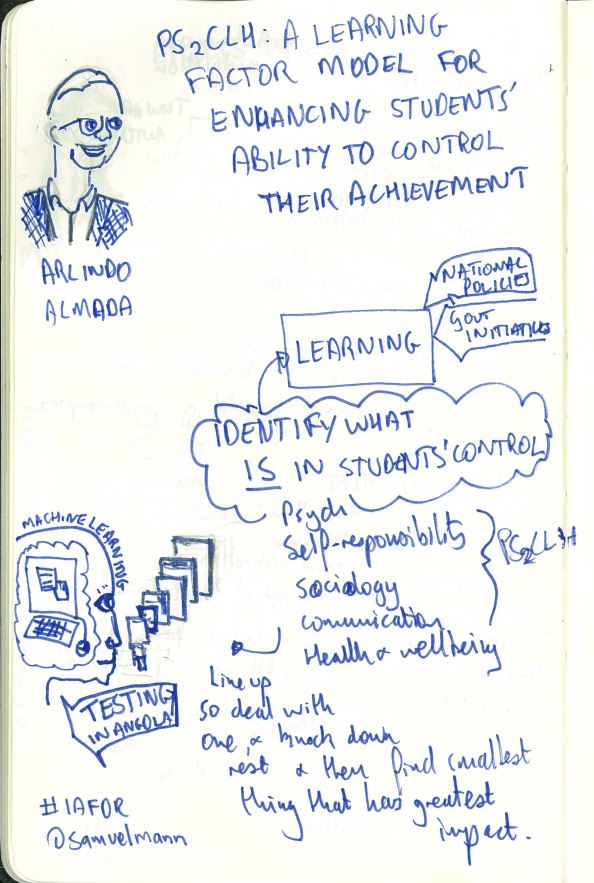 PS₂CLH: A LEARNING
FACTOR MODEL FOR
ENHANCING STUDENTS'
ABILITY TO CONTROL
THEIR ACHIEVEMENT
ARLINDO
ALMADA
NATIONAL
POLICIES
GOVT
INITIATIVES
LEARNING
IDENTIFY WHAT
IS IN STUDENTS' CONTROL
Psych
Self-responsibility
Sociology
communication
Health & wellbeing
PS₂CLH
MACHINE LEARNING
TESTING
IN ANGOLA
Line up
so deal with
one, & knock down
rest & then find smallest
thing that has greatest
impact.
#IAFOR
@samuelmann